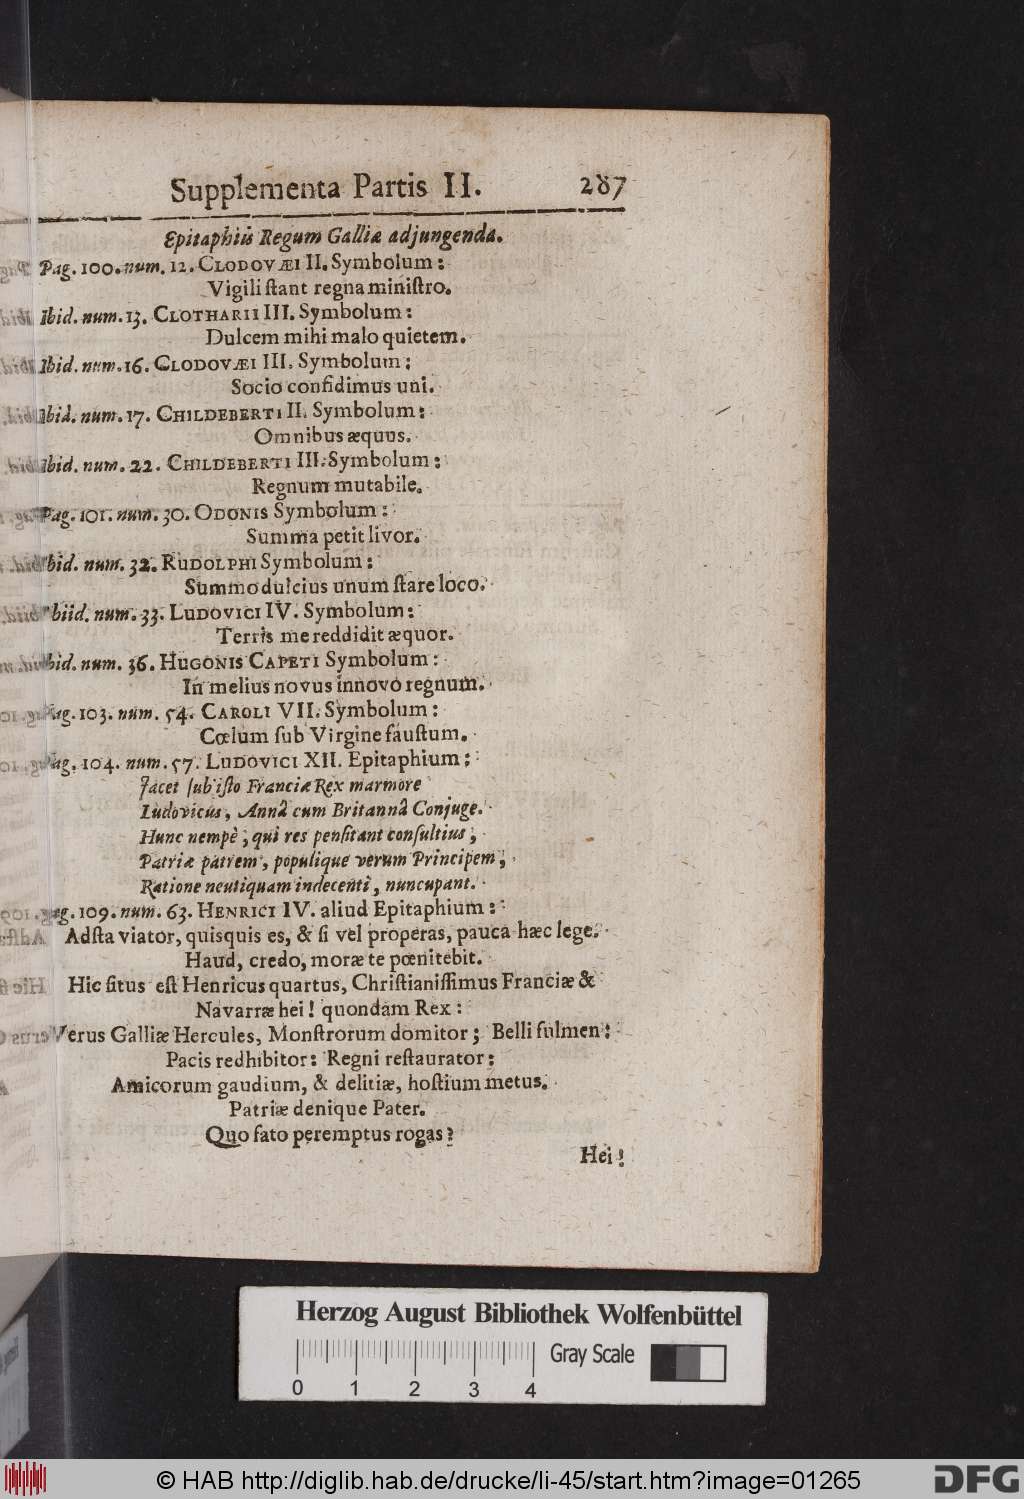 Supplementa Partis II. 287
Epitaphiis Regum Galliæ adjungenda.
Pag. 100. num. 12. CLODOVÆI II. Symbolum:
Vigili ſtant regna miniſtro.
Ibid. num. 13. CLOTHARII III. Symbolum:
Dulcem mihi malo quietem.
Ibid. num. 16. CLODOVÆI III. Symbolum:
Socio confidimus uni.
Ibid. num. 17. CHILDEBERTI II. Symbolum:
Omnibus æquus.
Ibid. num. 22. CHILDEBERTI III. Symbolum:
Regnum mutabile.
Pag. 101. num. 30. ODONIS Symbolum:
Summa petit livor.
Ibid. num. 32. RUDOLPHI Symbolum:
Summo dulcius unum ſtare loco.
Ibiid. num. 33. LUDOVICI IV. Symbolum:
Terris me reddidit æquor.
Ibid. num. 36. HUGONIS CAPETI Symbolum:
In melius novus innovo regnum.
Pag. 103. num. 54. CAROLI VII. Symbolum:
Cœlum ſub Virgine fauſtum.
Pag. 104. num. 57. LUDOVICI XII. Epitaphium:
Jacet ſub iſto Franciæ Rex marmore
Ludovicus, Annâ cum Britannâ Conjuge.
Hunc nempè, qui res penſitant conſultius,
Patriæ patrem, populique verum Principem,
Ratione neutiquam indecenti, nuncupant.
Pag. 109. num. 63. HENRICI IV. aliud Epitaphium:
Adſta viator, quisquis es, & ſi vel properas, pauca hæc lege.
Haud, credo, moræ te pœnitebit.
Hic ſitus eſt Henricus quartus, Chriſtianiſſimus Franciæ &
Navarræ hei! quondam Rex:
Verus Galliæ Hercules, Monſtrorum domitor; Belli fulmen:
Pacis redhibitor: Regni reſtaurator:
Amicorum gaudium, & delitiæ, hoſtium metus.
Patriæ denique Pater.
Quo fato peremptus rogas?
Hei!
Herzog August Bibliothek Wolfenbüttel
Gray Scale
0 1 2 3 4
© HAB http://diglib.hab.de/drucke/li-45/start.htm?image=01265
DFG